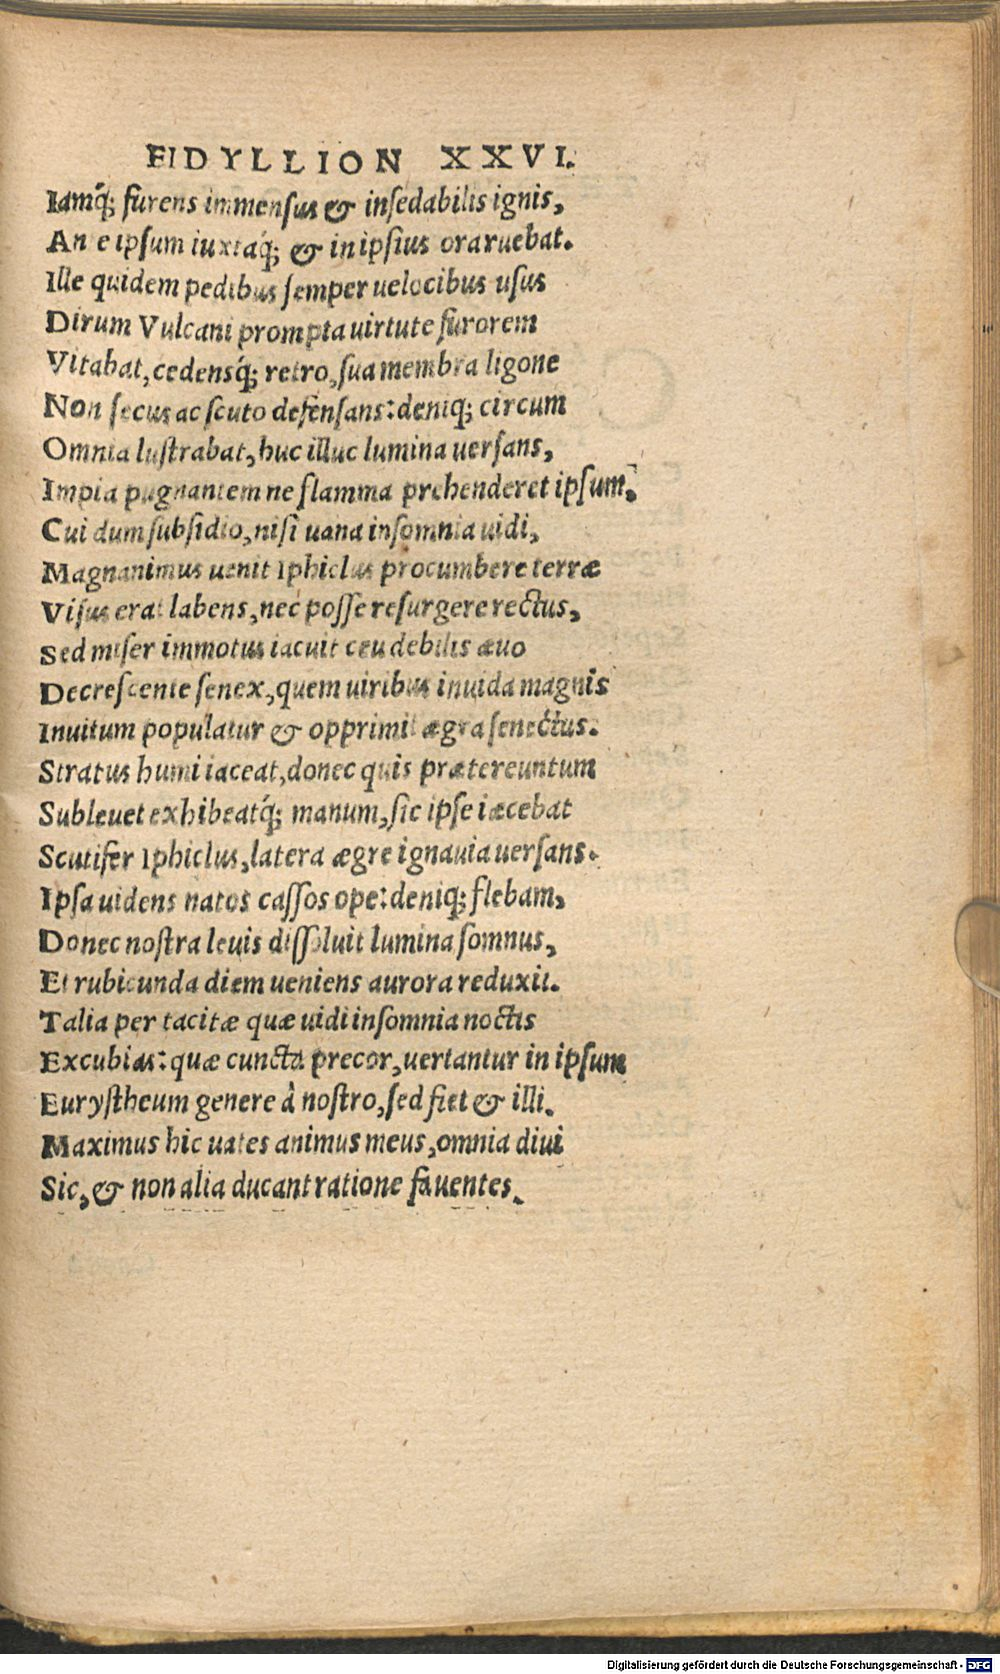 EIDYLLION XXVI.
Iamq́; furens immensus & insedabilis ignis,
An e ipsum iuxtaq́; & in ipsius ora ruebat.
Ille quidem pedibus semper uelocibus usus
Dirum Vulcani prompta uirtute furorem
Vitabat, cedensq́; retro, sua membra ligone
Non secus ac scuto defensans: deniq; circum
Omnia lustrabat, huc illuc lumina uersans,
Impia pugnantem ne flamma prehenderet ipsum.
Cui dum subsidio, nisi uana insomnia uidi,
Magnanimus uenit Iphiclus procumbere terræ
Visus erat labens, nec posse resurgere rectus,
Sed miser immotus iacuit ceu debilis æuo
Decrescente senex, quem uiribus inuida magnis
Inuitum populatur & opprimit ægra senectus.
Stratus humi iaceat, donec quis prætereuntum
Subleuet exhibeatq́; manum, sic ipse iæcebat
Scutifer Iphiclus, latera ægre ignauia uersans.
Ipsa uidens natos cassos ope: deniq; flebam,
Donec nostra leuis dissoluit lumina somnus,
Et rubicunda diem ueniens aurora reduxit.
Talia per tacitæ quæ uidi insomnia noctis
Excubias: quæ cuncta precor, uertantur in ipsum
Eurystheum genere à nostro, sed fiet & illi.
Maximus hic uates animus meus, omnia diui
Sic, & non alia ducant ratione fauentes.
Digitalisierung gefördert durch die Deutsche Forschungsgemeinschaft - DFG